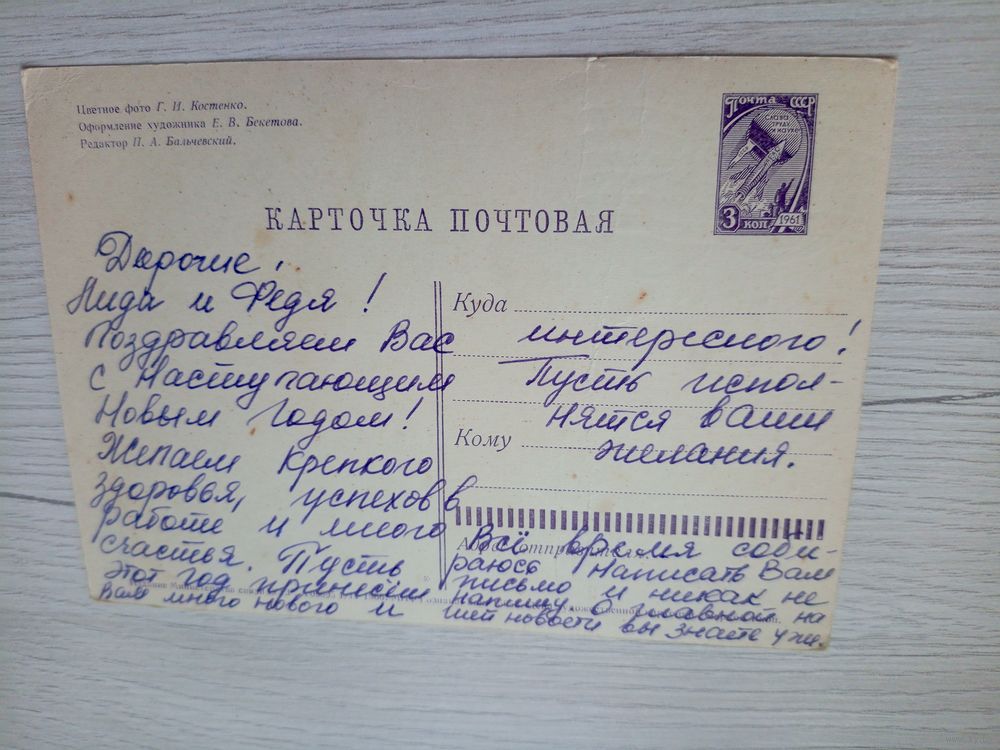 Цветное фото Г. И. Костенко.
Оформление художника Е. В. Бекетова.
Редактор П. А. Бальчевский.
Почта СССР
СЛАВА
ТРУДУ
И НАУКЕ
3 КОП
1961
КАРТОЧКА ПОЧТОВАЯ
Дорогие,
Лида и Федя!
Поздравляем Вас
с Наступающим
Новым годом!
Желаем крепкого
здоровья, успехов в
работе и много
счастья. Пусть
этот год принесёт
Вам много нового и
Куда
интересного!
Пусть испол-
нятся ваши
Кому
желания.
Всё время соби-
раюсь написать Вам
письмо и никак не
напишу о главной на
шей новости вы знаете уже.